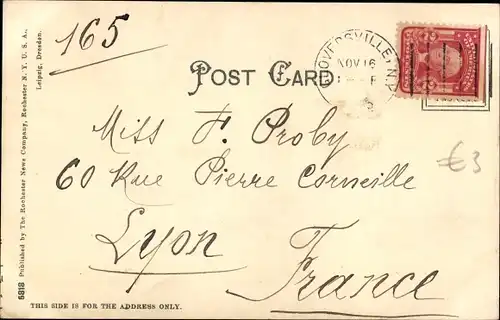 165
POST CARD
GLOVERSVILLE, N.Y.
NOV 16
Miss F. Proby
60 Rue Pierre Corneille
Lyon
France
€3
THIS SIDE IS FOR THE ADDRESS ONLY.
5818 Published by The Rochester News Company, Rochester N. Y. U. S. A.,
Leipzig, Dresden.